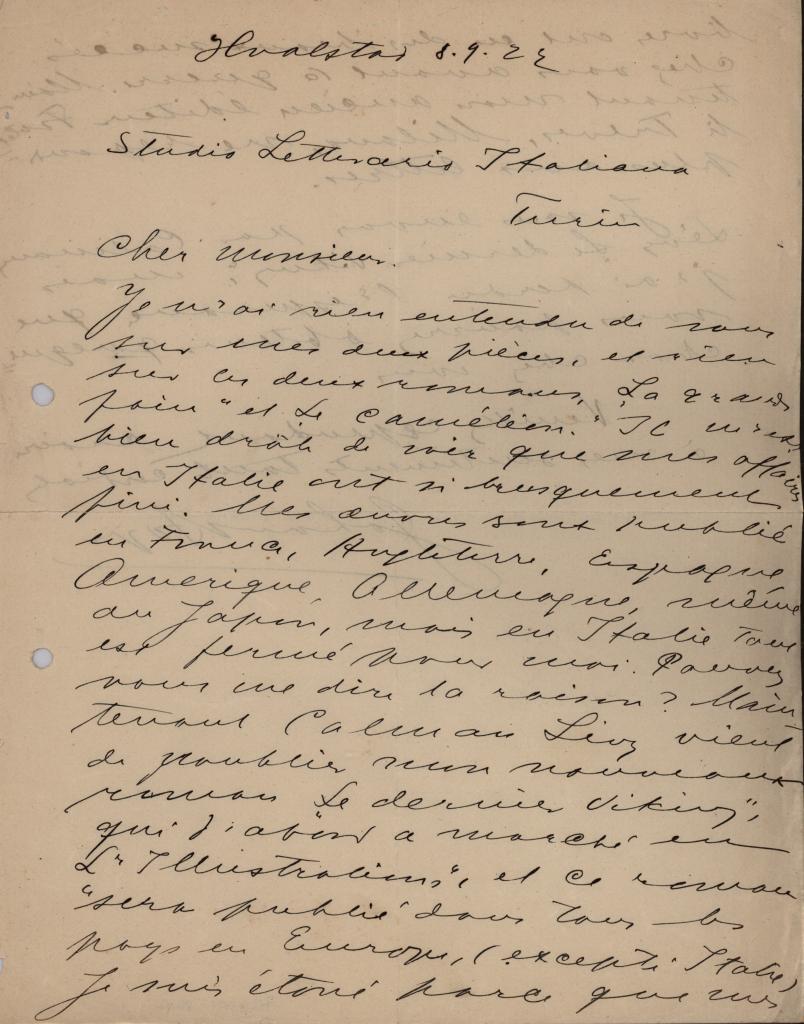 Hvalstad 8.9.22
Studio Letterario Italiana
Turin
Cher Monsieur.
Je n'ai rien entendu de vous
sur mes deux pièces, et rien
sur les deux romans, "La grande
faim" et Le caméléon." Il m'est
bien drôle de voir que mes affaires
en Italie ont si brusquement
fini. Mes œuvres sont publié
en France, Angleterre, Espagne
Amerique, Allemagne, même
au Japon, mais en Italie tout
est fermé pour moi. Pouvez
vous me dire la raison? Main-
tenant Calman Lévy vient
de poublier mon nouveaux
roman "Le dernier Viking",
qui d'abord a marché en
L'"Illustration", et ce roman
sera publié dans tous les
pays en Europe, (excepté Italie)
Je suis étoné parce que mes